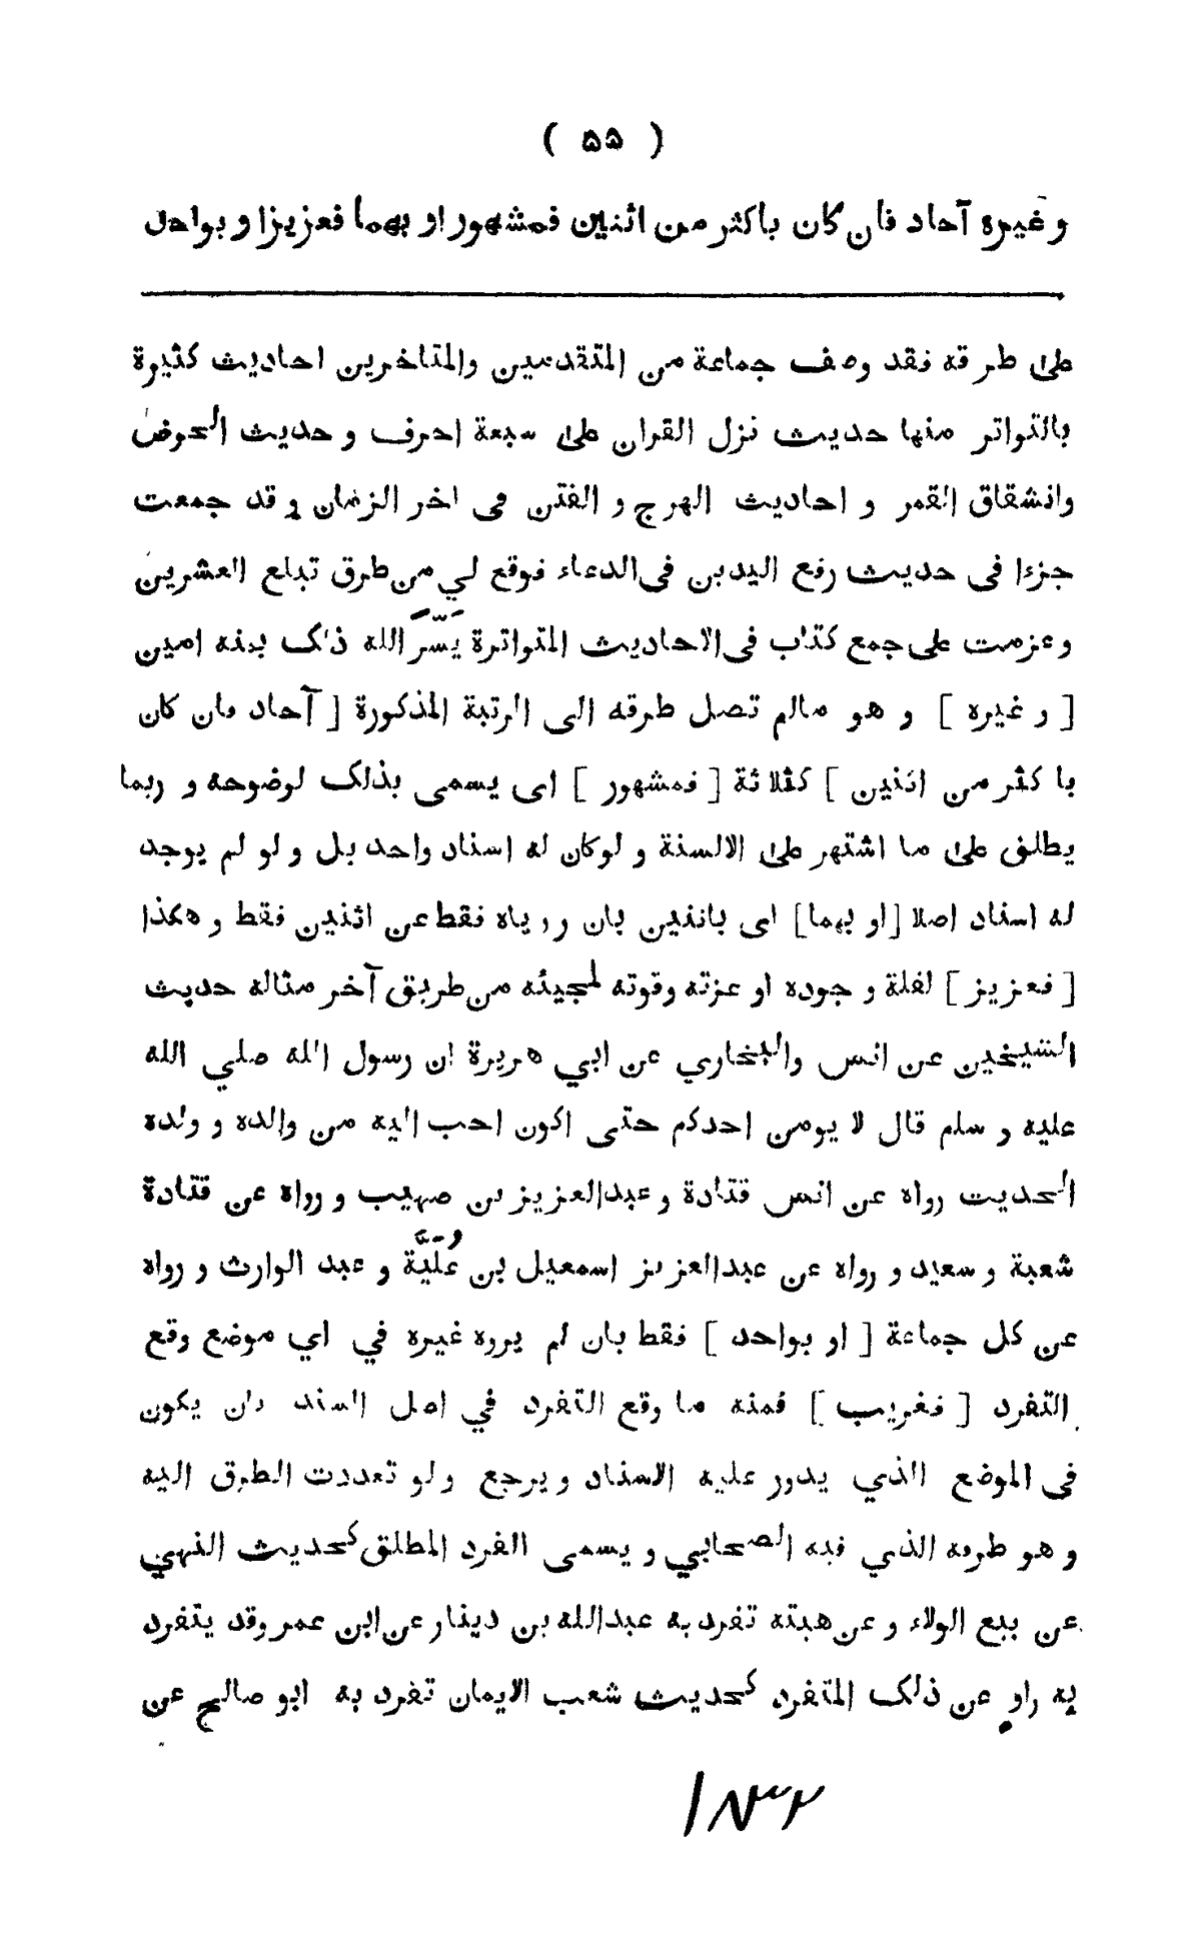 ( ۵۵ )
و غيره آحاد فان كان باكثر من اثنين فمشهور او بهما فعزيزا و بواحد
على طرقه فقد وصف جماعة من المتقدمين والمتاخرين احاديث كثيرة
بالتواتر منها حديث نزل القران على سبعة احرف و حديث الحوض
وانشقاق القمر و احاديث الهرج و الفتن فى اخر الزمان و قد جمعت
جزءا فى حديث رفع اليدين فى الدعاء فوقع لي من طرق تبلغ العشرين
وعزمت على جمع كتاب فى الاحاديث المتواترة يَسَّرَ الله ذلك بمنه امين
[ و غيره ] و هو مالم تصل طرقه الى الرتبة المذكورة [ آحاد فان كان
باكثر من اثنين ] كثلاثة [ فمشهور ] اى يسمى بذلك لوضوحه و ربما
يطلق على ما اشتهر على الالسنة و لوكان له اسناد واحد بل و لو لم يوجد
له اسناد اصلا [او بهما] اى باثنين بان روياه فقط عن اثنين فقط و هكذا
[ فعزيز ] لقلة و جوده او عزته وقوته لمجيئه من طريق آخر مثاله حديث
الشيخين عن انس والبخاري عن ابي هريرة ان رسول الله صلي الله
عليه و سلم قال لا يومن احدكم حتى اكون احب اليه من والده و ولده
الحديث رواه عن انس قتادة و عبدالعزيز بن صهيب و رواه عن قتادة
شعبة و سعيد و رواه عن عبدالعزيز اسمعيل بن عُلَيَّة و عبد الوارث و رواه
عن كل جماعة [ او بواحد ] فقط بان لم يروه غيره في اي موضع وقع
التفرد [ فغريب ] فمنه ما وقع التفرد في اصل السند بان يكون
فى الموضع الذي يدور عليه الاسناد و يرجع و لو تعددت الطرق اليه
و هو طرفه الذي فيه الصحابي و يسمى الفرد المطلق كحديث النهي
عن بيع الولاء و عن هبته تفرد به عبدالله بن دينار عن ابن عمر وقد يتفرد
به راو عن ذلك المتفرد كحديث شعب الايمان تفرد به ابو صالح عن